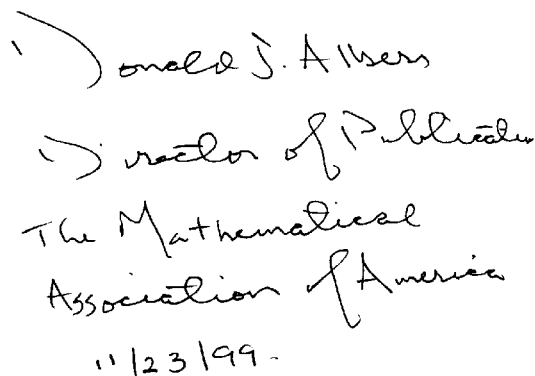 Donald J. Albers
Director of Publication
The Mathematical
Association of America
11/23/99.